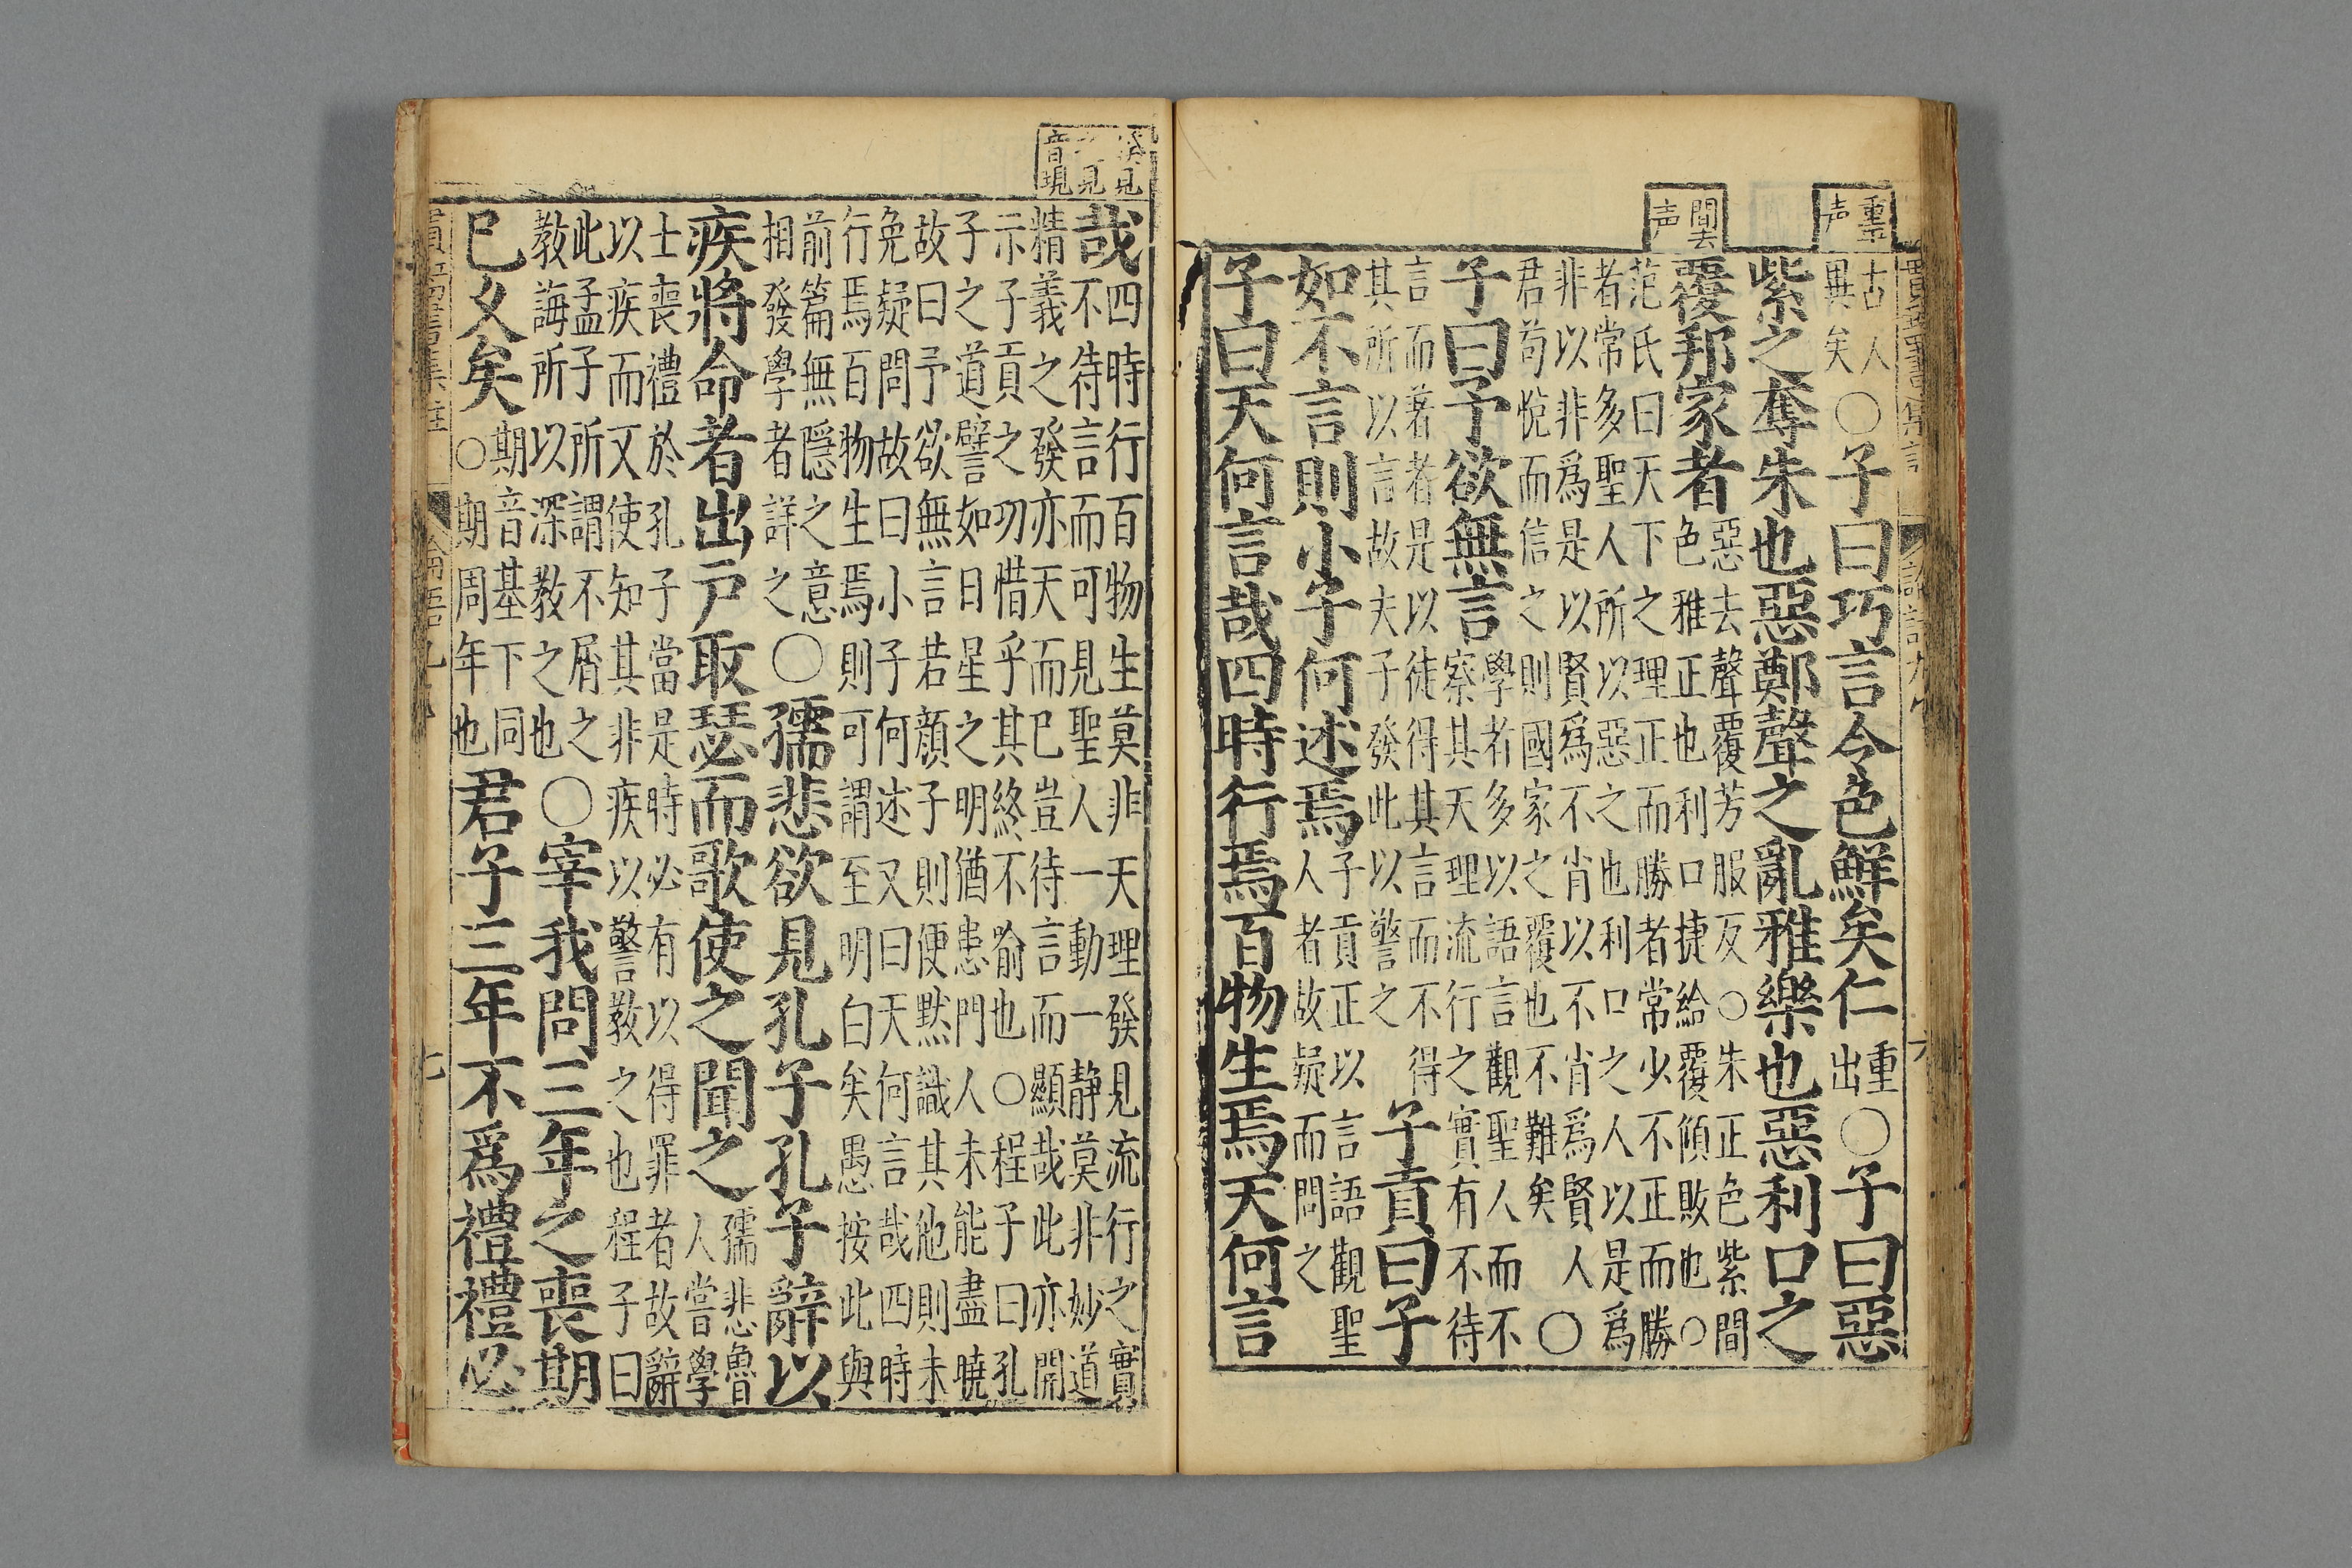 重平声
間去声
古人
異矣
○子曰巧言令色鮮矣仁
重
出
○子曰惡
紫之奪朱也惡鄭聲之亂雅樂也惡利口之
覆邦家者
惡去聲覆芳服反○朱正色紫間
色雅正也利口捷給覆傾敗也○
范氏曰天下之理正而勝者常少不正而勝
者常多聖人所以惡之也利口之人以是爲
非以非爲是以賢爲不肖以不肖爲賢人
君苟悅而信之則國家之覆也不難矣
○
子曰予欲無言
學者多以語言觀聖人而不
察其天理流行之實有不待
言而著者是以徒得其言而不得
其所以言故夫子發此以警之
子貢曰子
如不言則小子何述焉
子貢正以言語觀聖
人者故疑而問之
子曰天何言哉四時行焉百物生焉天何言
見
音現
哉
四時行百物生莫非天理發見流行之實
不待言而可見聖人一動一静莫非妙道
精義之發亦天而已豈待言而顯哉此亦開
示子貢之切惜乎其終不喻也○程子曰孔
子之道譬如日星之明猶患門人未能盡曉
故曰予欲無言若顔子則便黙識其他則未
免疑問故曰小子何述又曰天何言哉四時
行焉百物生焉則可謂至明白矣愚按此與
前篇無隱之意
相發學者詳之
○孺悲欲見孔子孔子辭以
疾將命者出戸取瑟而歌使之聞之
孺悲魯
人嘗學
士喪禮於孔子當是時必有以得罪者故辭
以疾而又使知其非疾以警敎之也程子曰
此孟子所謂不屑之
敎誨所以深敎之也
○宰我問三年之喪期
已久矣
期音基下同
○期周年也
君子三年不爲禮禮必